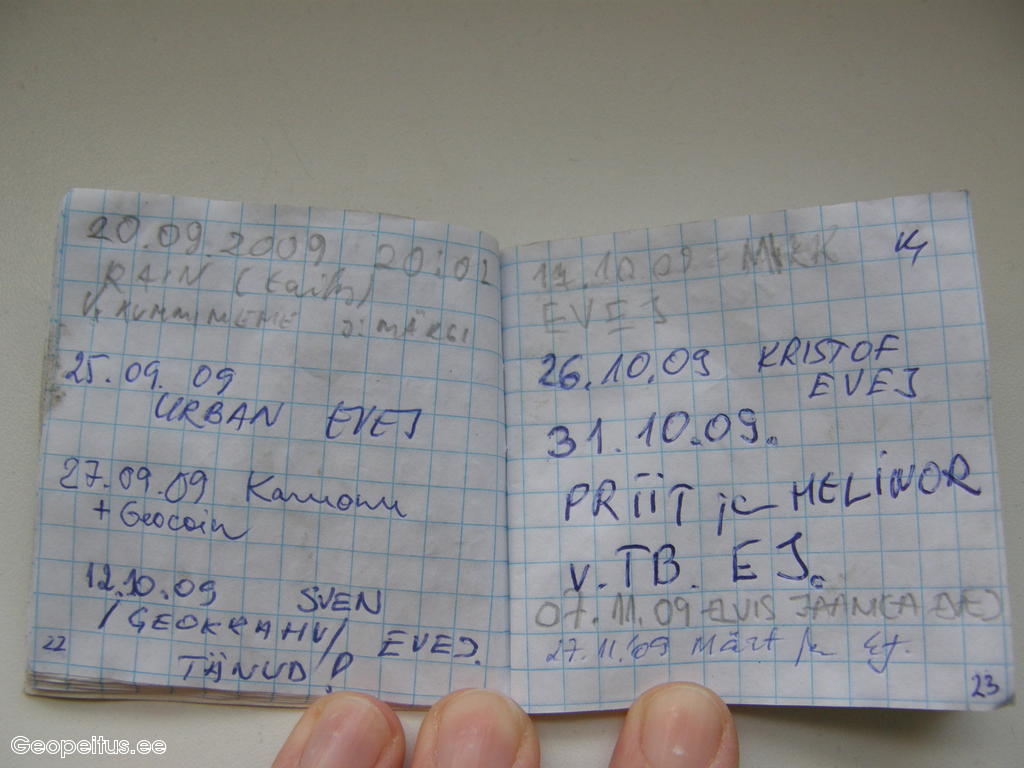 20.09.2009 20:02
RAIN
V. KUMMIMEME J: MÄRGI
25.09.09
URBAN EVEJ
27.09.09
+ Geocoin
12.10.09 SVEN
/GEOKRAHV/ EVEJ.
TÄNUD!
22
17.10.09 - MIKK
EVEJ
26.10.09 KRISTOF
EVEJ
31.10.09.
PRIIT ja HELINOR
V. TB. EJ.
07.11.09 ELVIS JAANIKA EVEJ
27.11.09 Märt ja EJ.
23
Geopeitus.ee